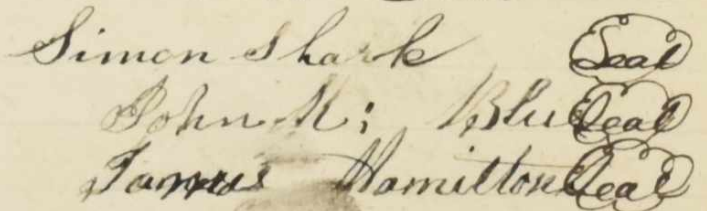 Simon Shark Seal
John M: Blue Seal
James Hamilton Seal